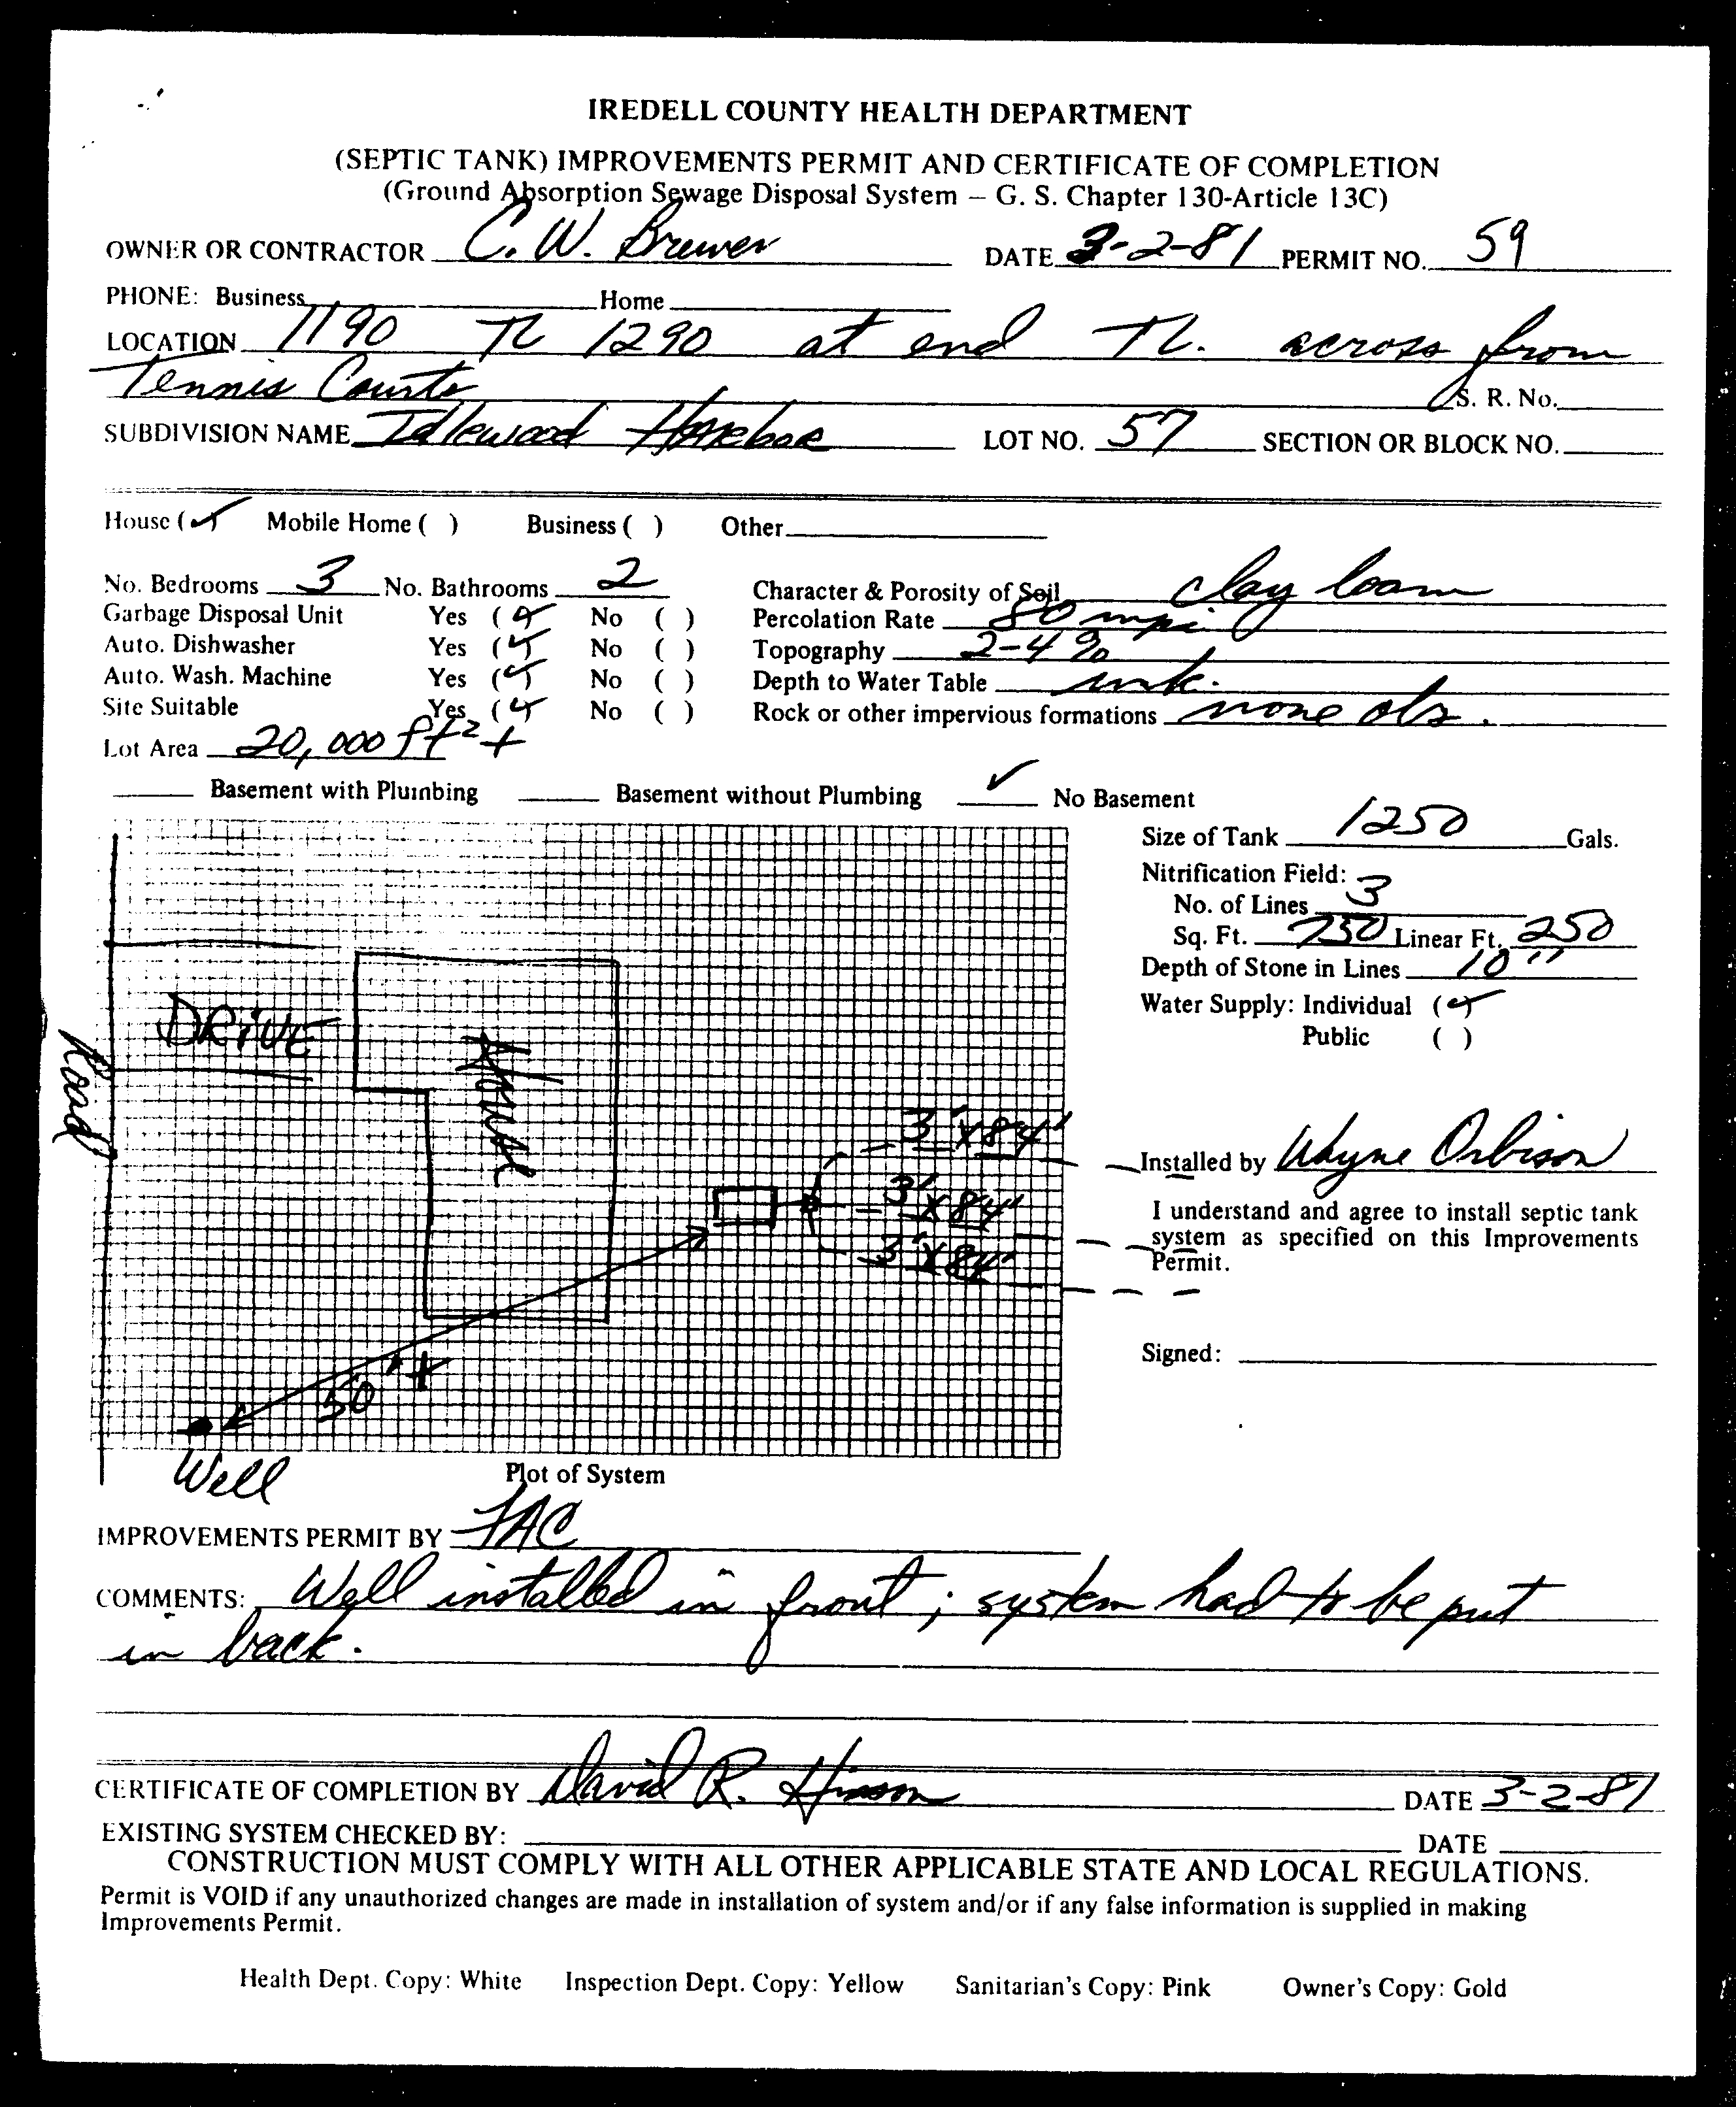 IREDELL COUNTY HEALTH DEPARTMENT
(SEPTIC TANK) IMPROVEMENTS PERMIT AND CERTIFICATE OF COMPLETION
(Ground Absorption Sewage Disposal System – G. S. Chapter 130-Article 13C)
OWNER OR CONTRACTOR C. W. Brewer DATE 3-2-81 PERMIT NO. 59
PHONE: Business Home
LOCATION 1190 TL 1290 at end TL. across from
Tennis Courts S. R. No.
SUBDIVISION NAME Idlewood Harbor LOT NO. 57 SECTION OR BLOCK NO.
House (✓) Mobile Home ( ) Business ( ) Other
No. Bedrooms 3 No. Bathrooms 2 Character & Porosity of Soil clay loam
Garbage Disposal Unit Yes (✓) No ( ) Percolation Rate 80 mpi
Auto. Dishwasher Yes (✓) No ( ) Topography 2-4%
Auto. Wash. Machine Yes (✓) No ( ) Depth to Water Table unk.
Site Suitable Yes (✓) No ( ) Rock or other impervious formations none obs.
Lot Area 20,000 ft² +
Basement with Plumbing Basement without Plumbing ✓ No Basement
Size of Tank 1250 Gals.
Nitrification Field:
No. of Lines 3
Sq. Ft. 750 Linear Ft. 250
Depth of Stone in Lines 10"
Water Supply: Individual (✓)
Public ( )
DRIVE
House
Road
3' x 84'
3' x 84'
3' x 84'
Installed by Wayne Orbison
I understand and agree to install septic tank
system as specified on this Improvements
Permit.
Signed:
50' +
Well
Plot of System
IMPROVEMENTS PERMIT BY FAC
COMMENTS: Well installed in front; system had to be put
in back.
CERTIFICATE OF COMPLETION BY David R. Hinson DATE 3-2-81
EXISTING SYSTEM CHECKED BY: DATE
CONSTRUCTION MUST COMPLY WITH ALL OTHER APPLICABLE STATE AND LOCAL REGULATIONS.
Permit is VOID if any unauthorized changes are made in installation of system and/or if any false information is supplied in making
Improvements Permit.
Health Dept. Copy: White Inspection Dept. Copy: Yellow Sanitarian's Copy: Pink Owner's Copy: Gold